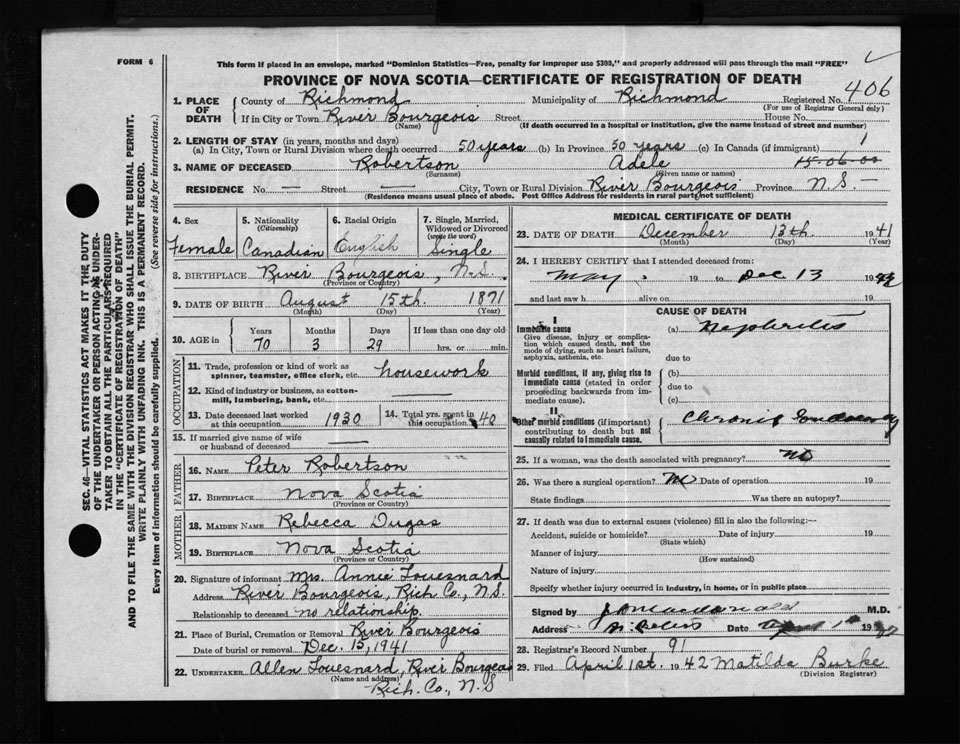 FORM 6
This form if placed in an envelope, marked "Dominion Statistics—Free, penalty for improper use $300," and properly addressed will pass through the mail "FREE"
PROVINCE OF NOVA SCOTIA—CERTIFICATE OF REGISTRATION OF DEATH
SEC. 46—VITAL STATISTICS ACT MAKES IT THE DUTY
OF THE UNDERTAKER OR PERSON ACTING AS UNDER-
TAKER TO OBTAIN ALL THE PARTICULARS REQUIRED
IN THE "CERTIFICATE OF REGISTRATION OF DEATH"
AND TO FILE THE SAME WITH THE DIVISION REGISTRAR WHO SHALL ISSUE THE BURIAL PERMIT.
WRITE PLAINLY WITH UNFADING INK. THIS IS A PERMANENT RECORD.
Every item of information should be carefully supplied. (See reverse side for instructions.)
1. PLACE OF DEATH County of Richmond Municipality of Richmond Registered No. 406
(For use of Registrar General only)
If in City or Town River Bourgeois Street House No.
(Name) (If death occurred in a hospital or institution, give the name instead of street and number)
2. LENGTH OF STAY (in years, months and days)
(a) In City, Town or Rural Division where death occurred 50 years (b) In Province 50 years (c) In Canada (if immigrant) 1
3. NAME OF DECEASED Robertson Adele 15-06-00
(Surname) (Given name or names)
RESIDENCE No. — Street — City, Town or Rural Division River Bourgeois Province N.S.—
(Residence means usual place of abode. Post Office Address for residents in rural parts not sufficient)
4. Sex Female
5. Nationality (Citizenship) Canadian
6. Racial Origin English
7. Single, Married, Widowed or Divorced (write the word) Single
8. BIRTHPLACE River Bourgeois, N.S.
(Province or Country)
9. DATE OF BIRTH August 15th. 1871
(Month) (Day) (Year)
10. AGE in Years 70 Months 3 Days 29 If less than one day old hrs. or min.
OCCUPATION
11. Trade, profession or kind of work as spinner, teamster, office clerk, etc. housework
12. Kind of industry or business, as cotton-mill, lumbering, bank, etc. —
13. Date deceased last worked at this occupation 1930
14. Total yrs. spent in this occupation 40
15. If married give name of wife or husband of deceased —
FATHER
16. NAME Peter Robertson
17. BIRTHPLACE Nova Scotia
(Province or Country)
MOTHER
18. MAIDEN NAME Rebecca Dugas
19. BIRTHPLACE Nova Scotia
(Province or Country)
20. Signature of informant Mrs. Annie Touesnard
Address River Bourgeois, Rich Co., N.S.
Relationship to deceased no relationship.
21. Place of Burial, Cremation or Removal River Bourgeois
Date of burial or removal Dec. 15, 1941
22. UNDERTAKER Allen Touesnard, River Bourgeois
(Name and address)
Rich. Co., N.S
MEDICAL CERTIFICATE OF DEATH
23. DATE OF DEATH December 13th. 1941
(Month) (Day) (Year)
24. I HEREBY CERTIFY that I attended deceased from:
May 19 to Dec 13 19
and last saw h alive on 19
CAUSE OF DEATH
I
Immediate cause (a) Nephritis
Give disease, injury or complication which caused death, not the mode of dying, such as heart failure, asphyxia, asthenia, etc.
due to
Morbid conditions, if any, giving rise to immediate cause (stated in order proceeding backwards from immediate cause).
(b)
due to
(c)
II
Other morbid conditions (if important) contributing to death but not causally related to immediate cause. Chronic
25. If a woman, was the death associated with pregnancy? No
26. Was there a surgical operation? No Date of operation 19
State findings Was there an autopsy?
27. If death was due to external causes (violence) fill in also the following:—
Accident, suicide or homicide? Date of injury 19
(State which)
Manner of injury
(How sustained)
Nature of injury
Specify whether injury occurred in industry, in home, or in public place
Signed by M.D.
Address St. Peters Date April 1st 1942
28. Registrar's Record Number 91
29. Filed April 1st. 1942 Matilda Burke
(Division Registrar)